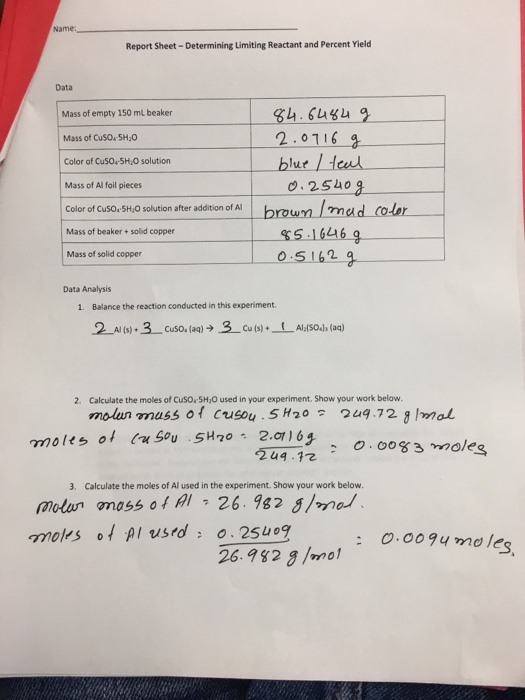 Name:
Report Sheet – Determining Limiting Reactant and Percent Yield
Data
Mass of empty 150 mL beaker 84.6484 g
Mass of CuSO₄·5H₂O 2.0716 g
Color of CuSO₄·5H₂O solution blue / teal
Mass of Al foil pieces 0.2540 g
Color of CuSO₄·5H₂O solution after addition of Al brown / mud color
Mass of beaker + solid copper 85.1646 g
Mass of solid copper 0.5162 g
Data Analysis
1. Balance the reaction conducted in this experiment.
2 Al (s) + 3 CuSO₄ (aq) → 3 Cu (s) + 1 Al₂(SO₄)₃ (aq)
2. Calculate the moles of CuSO₄·5H₂O used in your experiment. Show your work below.
molar mass of CuSO4 . 5H20 = 249.72 g/mol
moles of CuSO4 . 5H20 = 2.0716g
249.72 = 0.0083 moles
3. Calculate the moles of Al used in the experiment. Show your work below.
Molar mass of Al = 26.982 g/mol.
moles of Al used = 0.2540g
26.982 g/mol = 0.0094 moles.